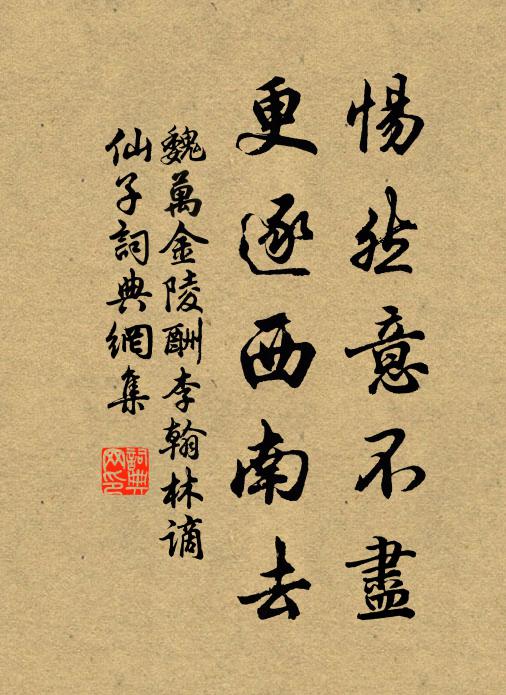 惕然意不盡
更逐西南去
魏萬金陵酬李翰林謫
仙子詞典網集
詞典
网印